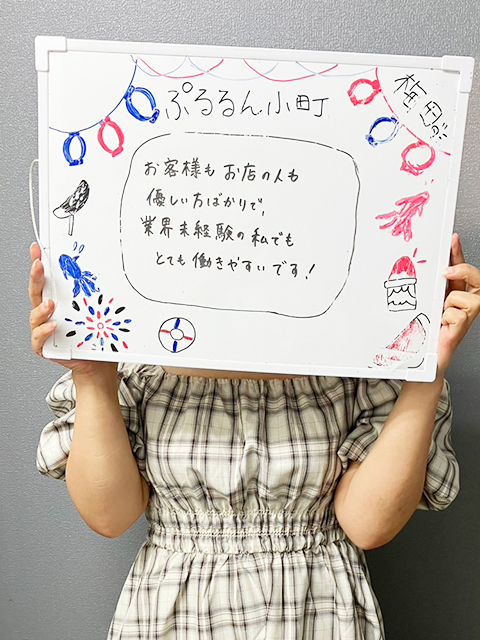 ぷるるん小町
梅田の…
お客様もお店の人も
優しい方ばかりで、
業界未経験の私でも
とても働きやすいです！